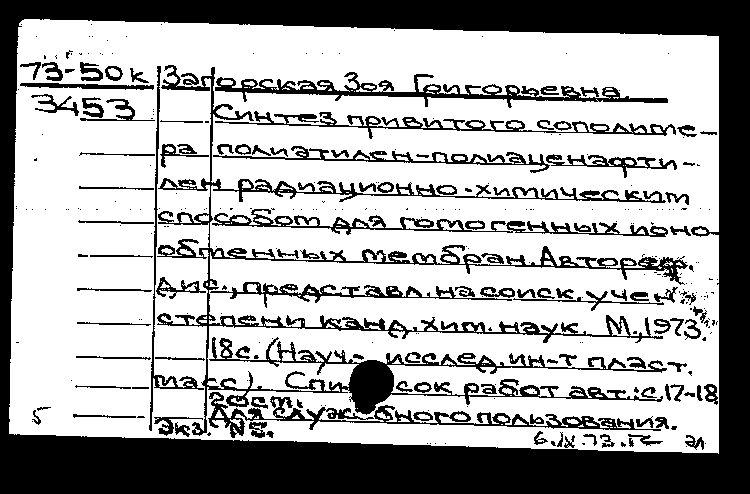 73-50к Загорская, Зоя Григорьевна.
3453 Синтез привитого сополиме-
ра полиэтилен-полиаценафти-
лен радиационно-химическим
способом для гомогенных ионо-
обменных мембран. Автореф.
дис., представл. на соиск. учен.
степени канд. хим. наук. М., 1973.
18с. (Науч.- исслед. ин-т пласт.
масс). Список работ авт.: с. 17-18
Для служебного пользования.
5 Экз. №5.
6.IX.73. эл